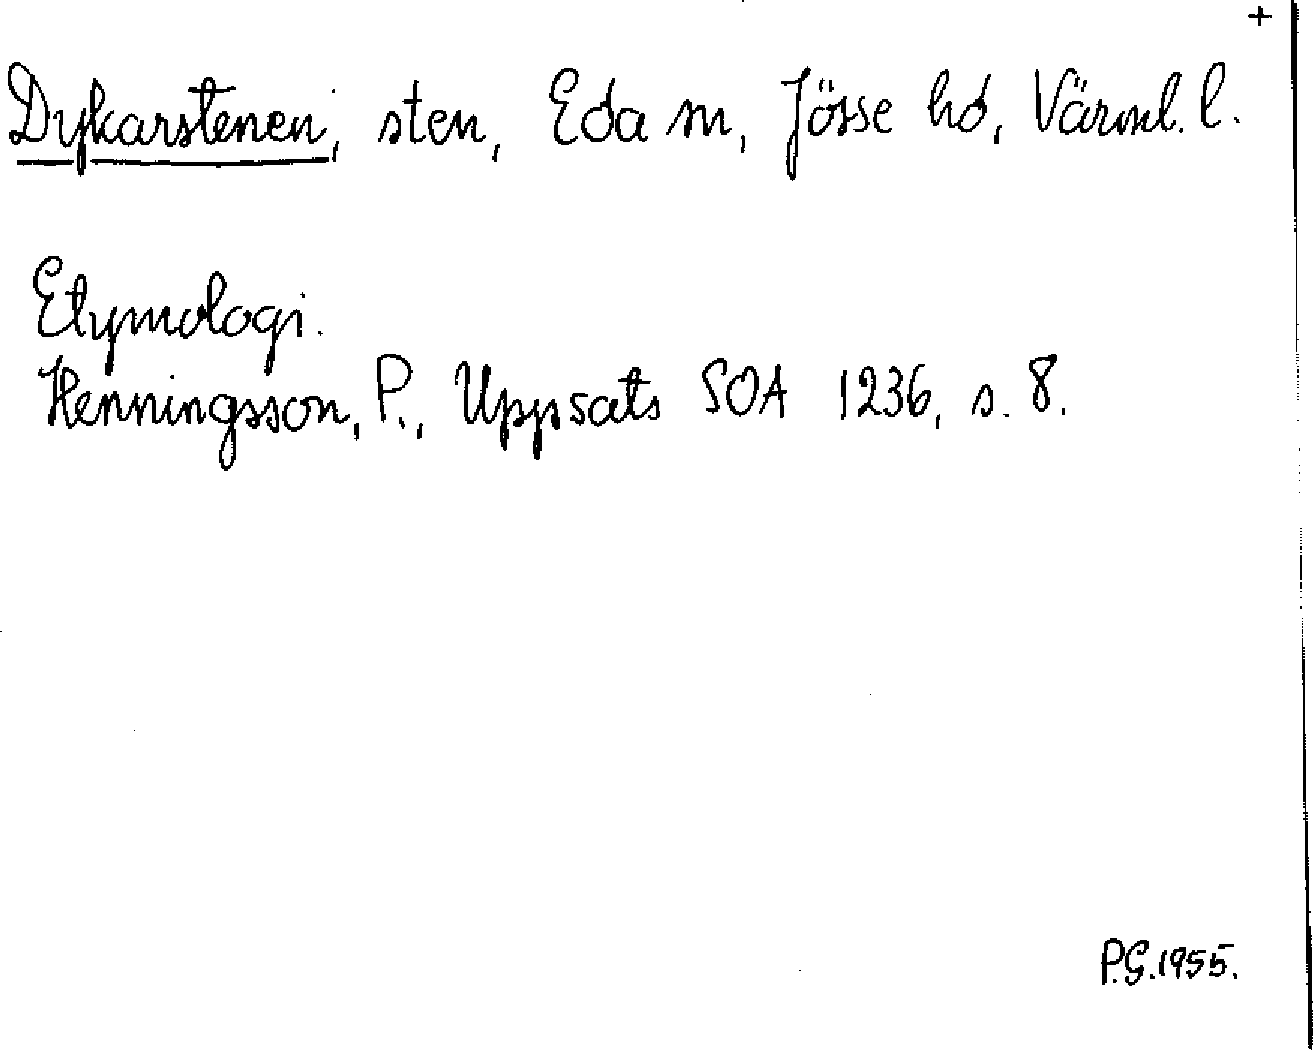 +
Dykarstenen, sten, Eda sn, Jösse hd, Värml. l.
Etymologi.
Henningsson, P., Uppsats SOA 1236, s. 8.
P.G. 1955.